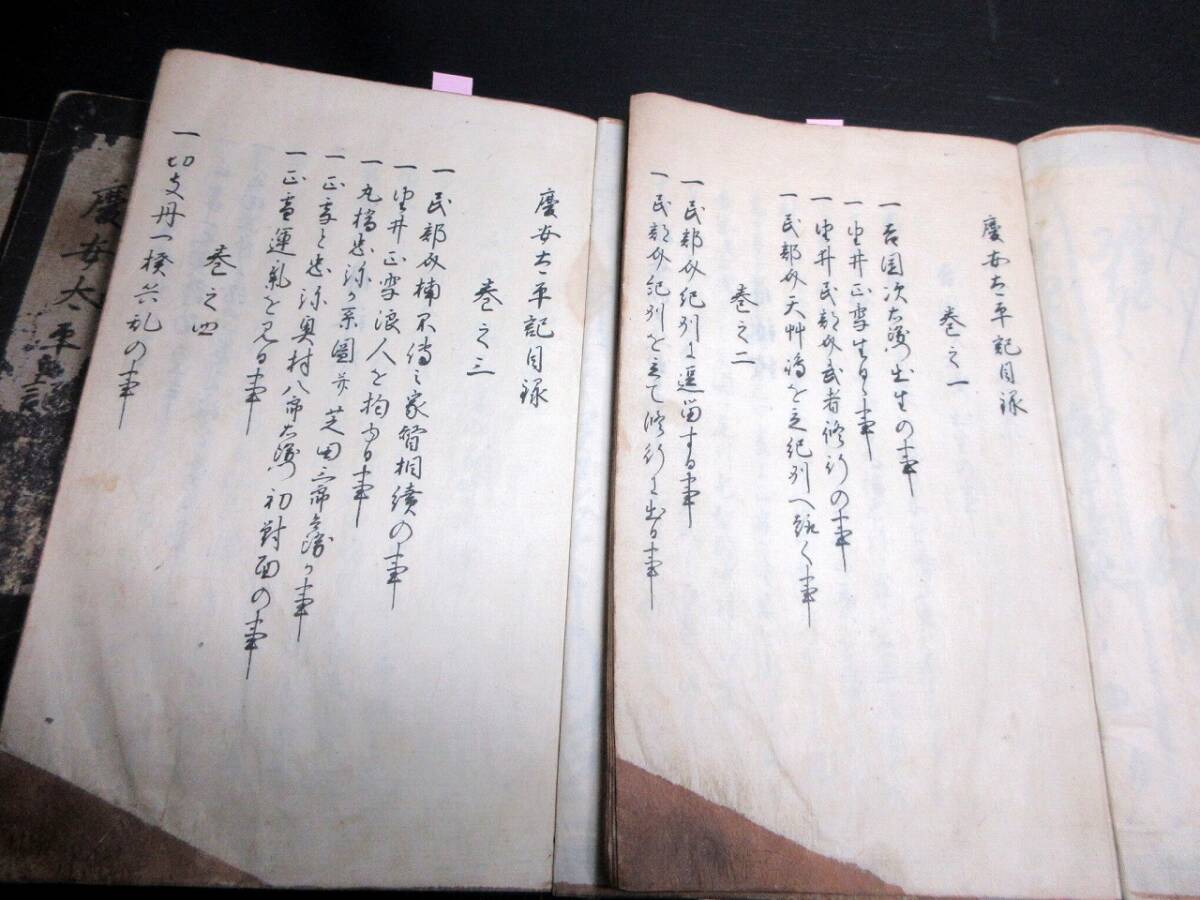 慶安太平記目録
巻之一
一 吉岡次左衛門出生の事
一 由井正雪生立の事
一 由井民部介武者修行の事
一 民部介天艸嶋を立紀刕へ趣く事
巻之二
一 民部介紀刕に逗留する事
一 民部介紀刕を立て修行に出る事
慶安太平記目録
巻之三
一 民部介楠不傳之家督相續の事
一 由井正雪浪人を抱る事
一 丸橋忠弥が系圖并芝田三郎兵衛が事
一 正雪と忠弥奥村八郎右衛門初對面の事
一 正雪運氣を見る事
巻之四
一 切支丹一揆発乱の事
慶安太平記